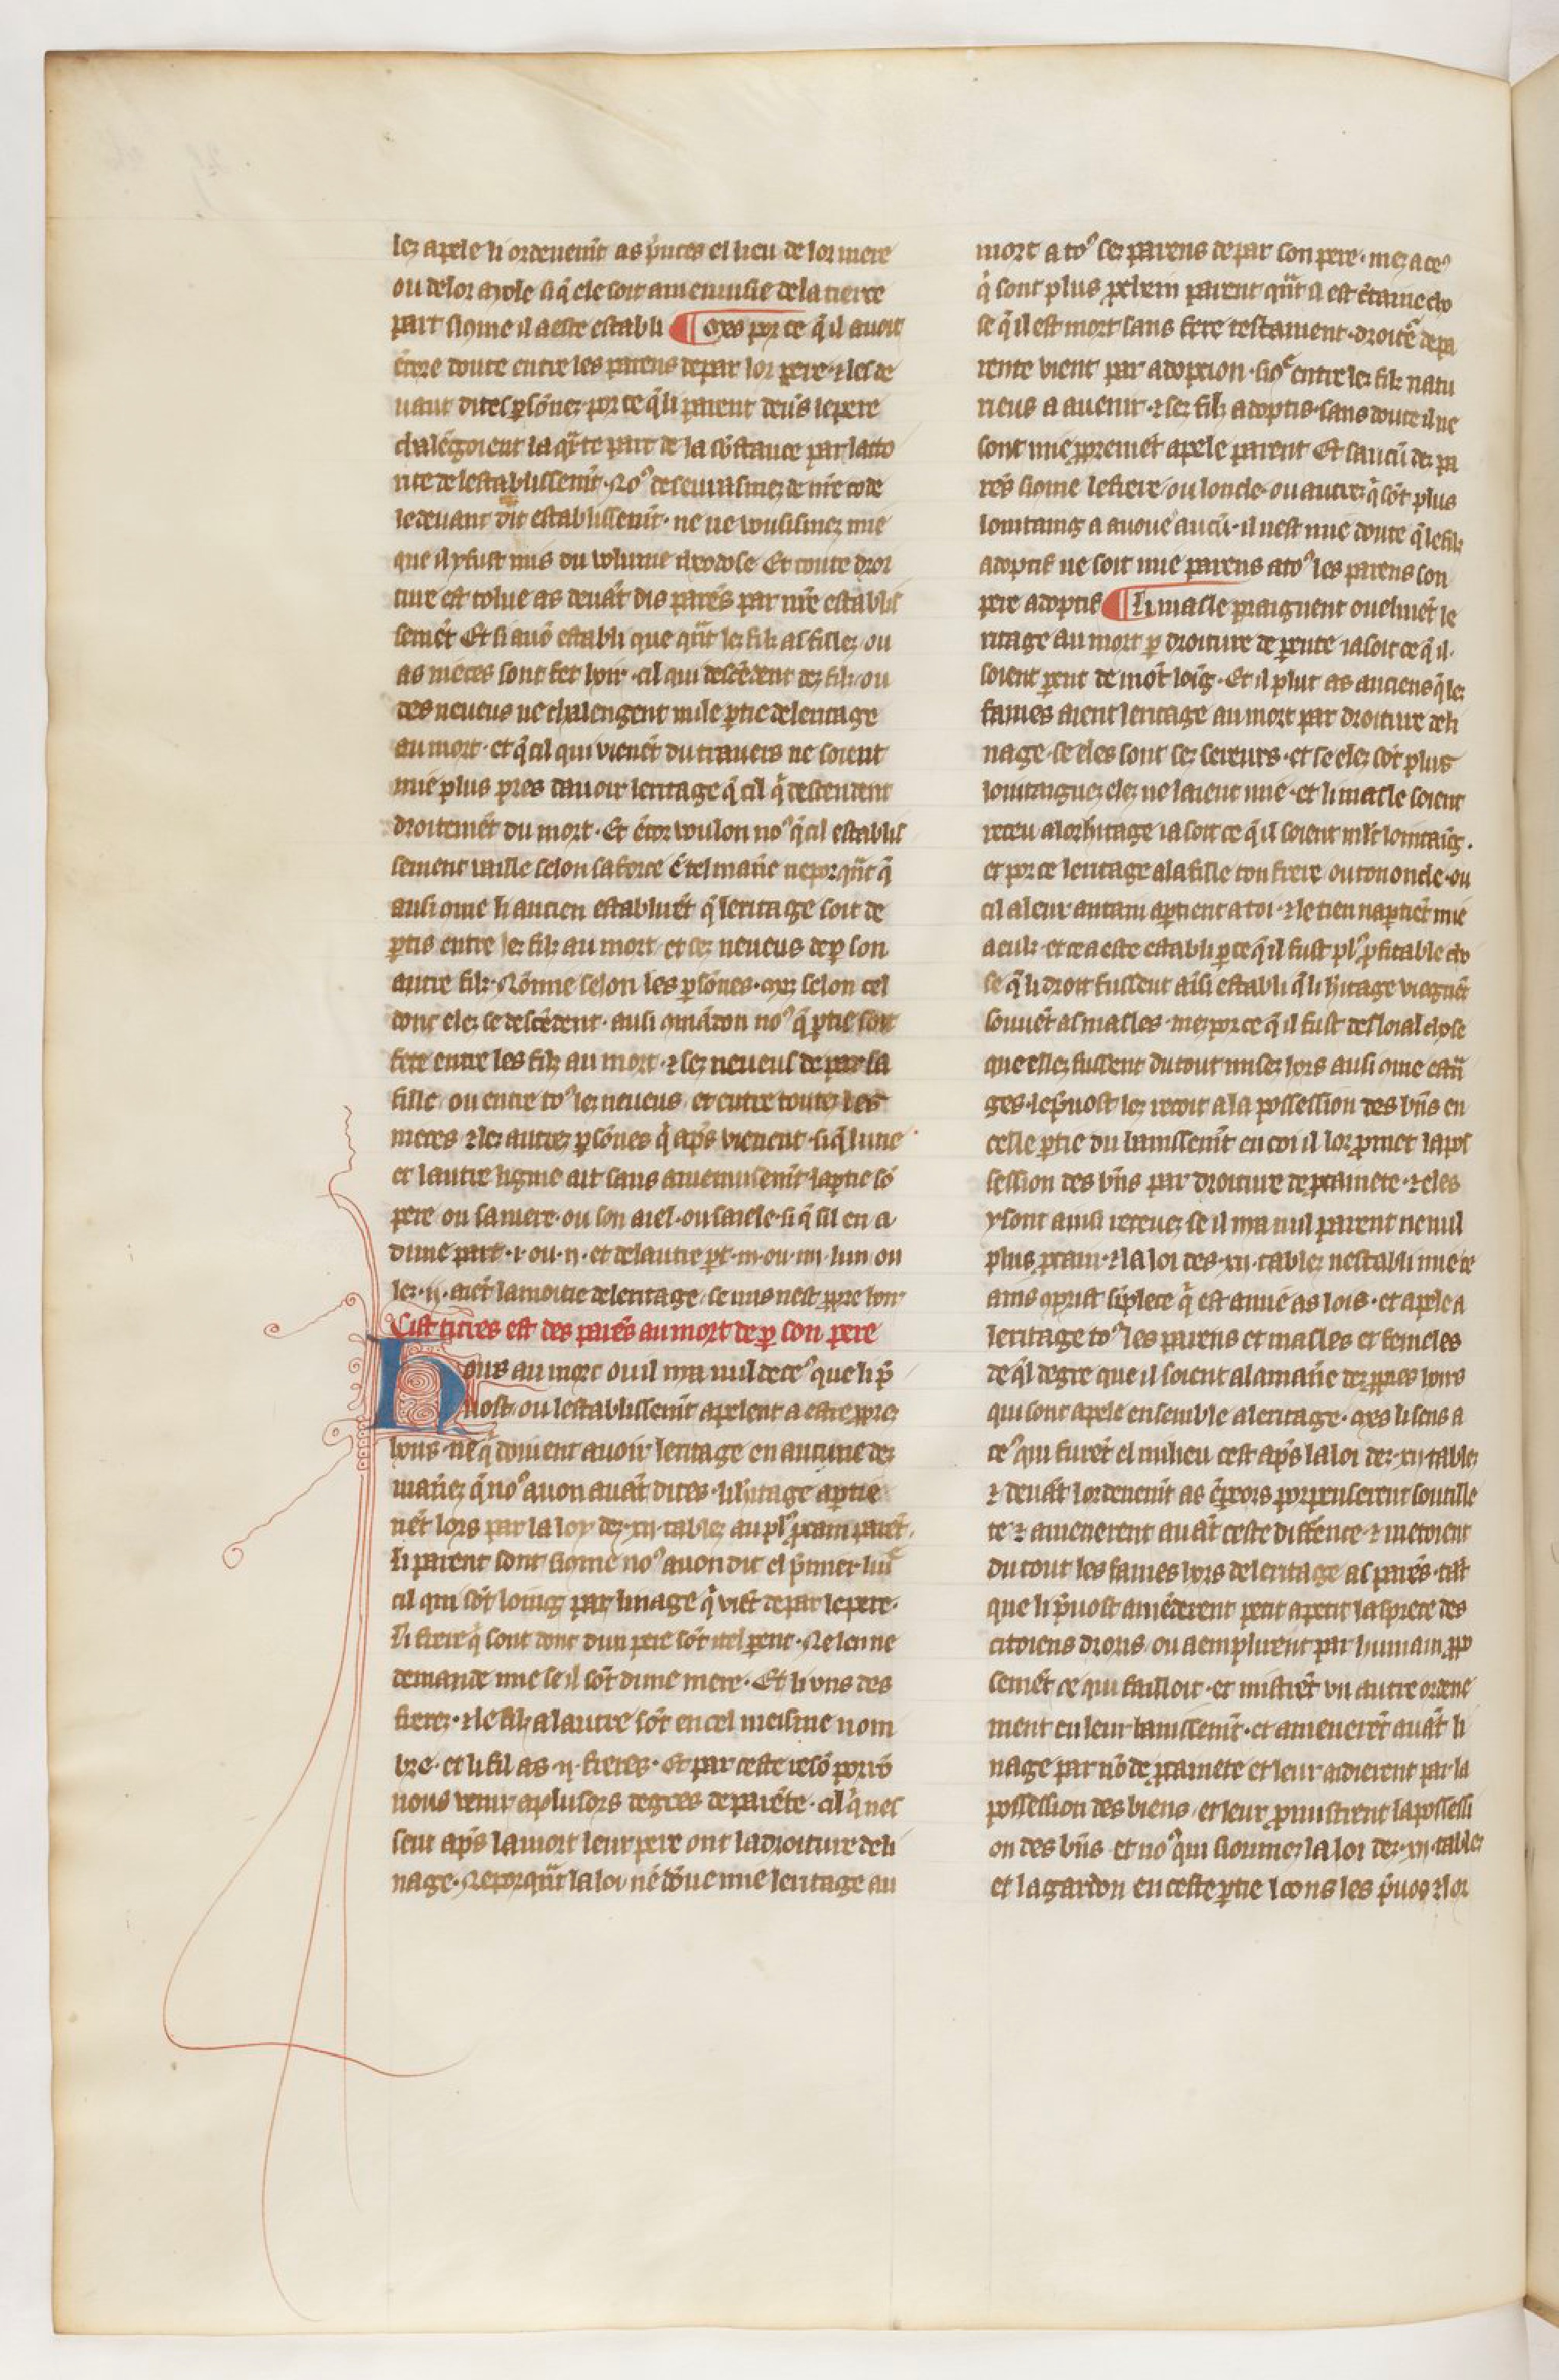 lez apele li ordenem̃t as p̃nces el lieu de lor mere
ou de lor ayole si q̃ ele soit amenuisie de la tierce
part si ꝯme il a este establi ¶ Mes por ce q̃ il auoit
ẽcore doute entre les parens de par lor pere ⁊ les de
uant dites ꝑsõnez por ce q̃ li parent deuṽs le pere
chalẽgoient la q̃rte part de la sb̃stance par lauto
rite de lestablissem̃t. No⁹ deseurasmez de nr̃e code
le deuant dit establissem̃t. ne ne vousismez mie
que il y fust mis du volume theodose Et toute droi
ture est tolue as deuãt dis parẽs par nr̃e establis
semẽt Et si auõ establi que q̃nt lez filz as fillez ou
as nieces sont fet hoir. cil qui descẽdent dez filz ou
des neueus ne chalengent nule ꝑtie de leritage
au mort. et q̃ cil qui vienẽt du trauers ne soient
mie plus pres dauoir leritage q̃ cil q̃ descendent
droitemẽt du mort. Et ẽcor voulon no⁹ q̃ cil establis
sement vaille selon sa force ẽ tel manie neporq̃nt q̃
ausi ꝯme li ancien establirẽt q̃ leritage soit de
ꝑtis entre lez filz au mort et lez neueus de ꝑ son
autre filz. Nõmie selon les ꝑsõnes. mez selon cel
dont elez se descẽdent. ausi ꝯmãdon no⁹ q̃ ꝑtie soit
fete entre les filz au mort. ⁊ lez neueus de par la
fille ou entre to⁹ lez neueus et entre toutez les
nieces ⁊ lez autrez ꝑsõnes q̃ apr̃s vienent. si q̃ lune
et lautre lignie ait sans amenuisem̃t la ꝑtie sõ
pere ou sa mere. ou son aiel. ou saiele. si q̃ sil en a
dune part .i. ou .ij. et de lautre ꝑt .iij. ou .iiij. lun ou
lez .ij. aiẽt la moitie de leritage. se nus nest ꝓpre hoir
Cist titres est des parẽs au mort de ꝑ son pere
Hoirs au mort ou il nya nul de ce⁹ que li p̃
uost ou lestablissem̃t apelent a estre ꝓprez
hoirs ne q̃ doiuent auoir leritage en aucune dez
maniez q̃ no⁹ auon auãt dites. li h̃itage aꝑtie
nẽt lors par la loy dez .xij. tablez au pl⁹ ꝓcain parẽt.
li parent sont si ꝯme no⁹ auon dit el p̃mier liu͛e
cil qui sõt loing par linage q̃ viẽt de par le pere.
Li frere q̃ sont dont dun pere sõt itel ꝑent. Ne len ne
demande mie se il sõt dune mere. Et li vns des
frerez. ⁊ le filz a lautre sõt en cel meisme nom
bre. et li fil as .ij. freres. Et par ceste resõ porrõ
nous venir a plusors degres de parẽte. cil q̃ nes
sent apr̃s la mort leur pere ont la droiture de li
nage. Neporq̃nt la loi ne dõne mie leritage au
mort a to⁹ sez parens de par son pere. mez a ce⁹
q̃ sont plus ꝓchein parent q̃nt il est ẽtaine cho
se q̃ il est mort sans fere testament. droit͛e de pa
rente vient par adopcion. si ꝯ͛ entre lez filz natu
rieus a auenir. ⁊ sez filz adoptis. sans doute il ne
sont mie ꝓpremẽt apele parent Et saucũ dez pa
rẽs si ꝯme le frere ou loncle. ou autrez q̃ sõt plus
lointaing a auoue aucũ. il nest mie doute q̃ le filz
adoptif ne soit mie parens a to⁹ les parens son
pere adoptif ¶ Li masle praignent ouelmẽt le
ritage au mort ꝑ droiture de ꝑente ia soit ce q̃ il
soient ꝑent de mõt loĩg. Et il plut as anciens q̃ lez
fames aient leritage au mort par droiture de li
nage. se eles sont sez sereurs. et se elez sõt plus
lointaignez elez ne laient mie. et li masle soient
receu a lor h̃itage ia soit ce q̃ il soient ml̃t lointaĩg.
et por ce leritage a la fille ton frere ou ton oncle. ou
cil a leur antain aꝑtient a toi. ⁊ le tien naꝑtiẽt mie
a eulz. et ce a este establi ꝑ ce q̃ il fust pl⁹ ꝓfitable cho
se q̃ li droit fussent aĩsi establi q̃ li h̃itage viegnẽt
souuẽt as masles. mez por ce q̃ il fust desloial chose
que ellez fussent du tout misez hors ausi ꝯme estrã
ges. le p̃uost lez recoit a la possession des biẽs en
celle ꝑtie du banissem̃t en coi il lor ꝓmet la pos
session des biẽs par droiture de ꝓcainete. ⁊ eles
y sont ainsi receuez se il nya nul parent ne nul
plus ꝓcain. ⁊ la loi des .xij. tablez nestabli mie ce
ains ꝯprist sĩplece q̃ est amie as lois. et apele a
leritage to⁹ les parens et masles et femeles
de q̃l degre que il soient a la manie dez ꝓpres hoirs
qui sont apele ensemble a leritage. Mes li sens a
ce⁹ qui furẽt el milieu cest apr̃s la loi dez .xij. tablez
⁊ deuãt lordenem̃t as ẽpeors porpenserent soutille
te ⁊ amenerent auãt ceste diffẽnce ⁊ metoient
du tout les fames hors de leritage as parẽs. tãt
que li p̃uost amẽderent petit a petit laspreté des
citoiens drois. ou aemplirent par humain ꝓpo
semẽt ce qui failloit. et mistrẽt vn autre ordene
ment en leur banissem̃t. et amenerẽt auãt li
nage par nõ de ꝓcainete et leur aidierent par la
possession des biens. et leur ꝓmistrent la possessi
on des biẽs. et no⁹ qui sioumez la loi dez .xij. tablez
et la gardon en ceste ꝑtie loons les p̃uos ⁊ lor